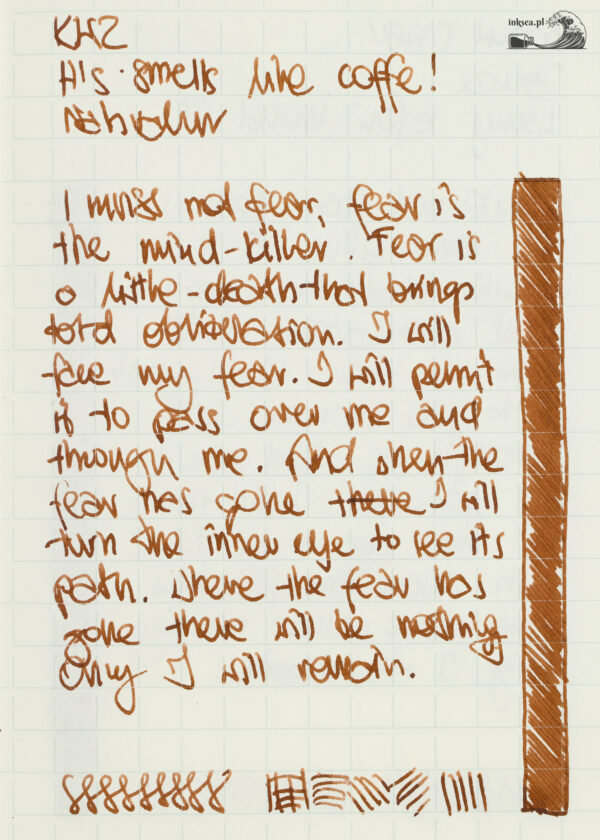 inksea.pl
KWZ
It's smells like coffe!
Nahvalur
I must not fear, fear is
the mind-killer. Fear is
a little-death that brings
total obliteration. I will
face my fear. I will permit
it to pass over me and
through me. And when the
fear has gone there I will
turn the inner eye to see its
path. Where the fear has
gone there will be nothing
Only I will remain.